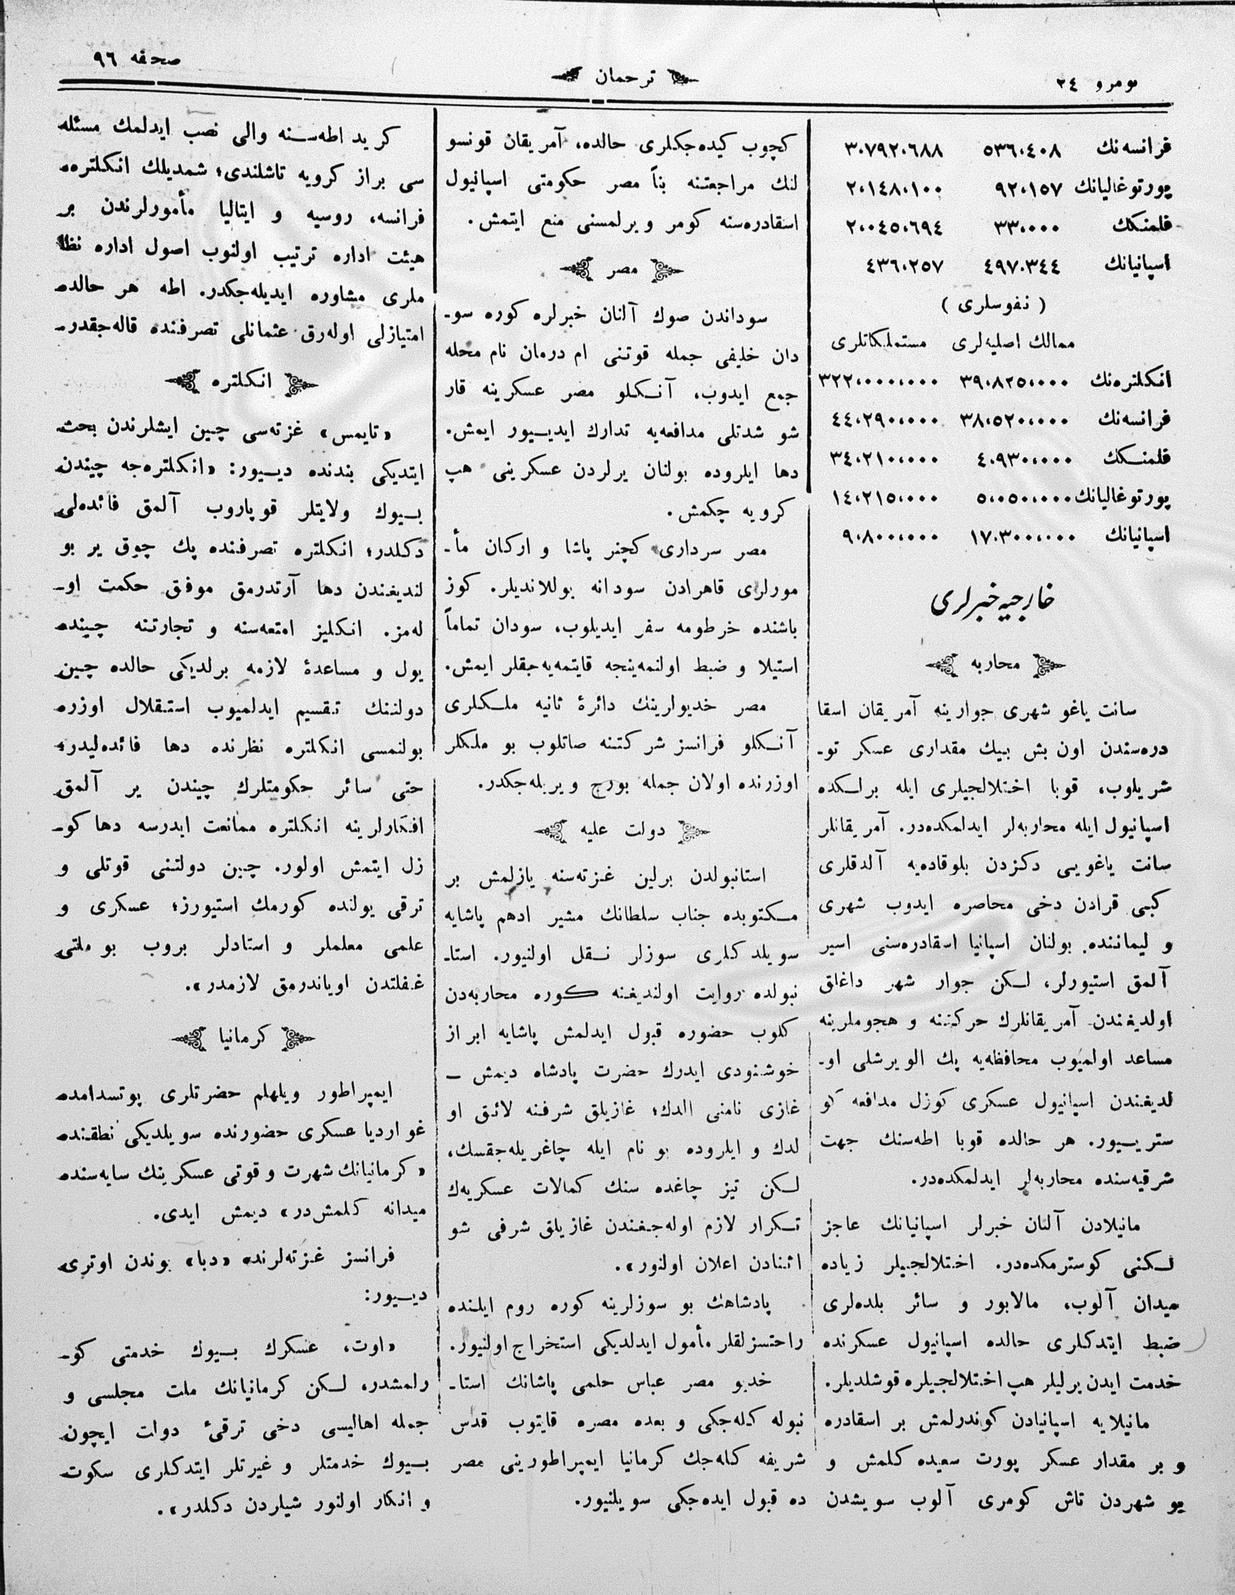 نومرو ٢٤
ترجمان
صحفه ٩٦
فرانسه‌نك ٥٣٦٠٤٠٨ ٣٠٧٩٢٠٦٨٨
پورتوغاليانك ٩٢٠١٥٧ ٢٠١٤٨٠١٠٠
فلمنكك ٣٣٠٠٠٠ ٢٠٠٤٥٠٦٩٤
اسپانيانك ٤٩٧٠٣٤٤ ٤٣٦٠٢٥٧
( نفوسلرى )
ممالك اصليه‌لرى مستملكاتلرى
انكلتره‌نك ٣٩٠٨٢٥٠٠٠٠ ٣٢٢٠٠٠٠٠٠٠
فرانسه‌نك ٣٨٠٥٢٠٠٠٠٠ ٤٤٠٢٩٠٠٠٠٠
فلمنكك ٤٠٩٣٠٠٠٠٠ ٣٤٠٢١٠٠٠٠٠
پورتوغاليانك ٥٠٠٥٠٠٠٠٠ ١٤٠٢١٥٠٠٠٠
اسپانيانك ١٧٠٣٠٠٠٠٠٠ ٩٠٨٠٠٠٠٠٠
خارجيه خبرلرى
محاربه
سانت ياغو شهرى جوارينه آمريقان اسقا
دره‌سندن اون بش بيك مقدارى عسكر تو-
شريلوب، قوبا اختلالجيلرى ايله برلكده
اسپانيول ايله محاربه‌لر ايدلمكده‌در. آمريقانلر
سانت ياغويى دكزدن بلوقاده‌يه آلدقلرى
كبى قرادن دخى محاصره ايدوب شهرى
و ليماننده بولنان اسپانيا اسقادره‌سنى اسير
آلمق استيورلر، لكن جوار شهر داغلق
اولديغندن آمريقانلرك حركتنه و هجوملرينه
مساعد اولميوب محافظه‌يه پك الويرشلى او-
لديغندن اسپانيول عسكرى كوزل مدافعه كو
ستريــيور. هر حالده قوبا اطه‌سنك جهت
شرقيه‌سنده محاربه‌لر ايدلمكده‌در.
مانيلادن آلنان خبرلر اسپانيانك عاجز
لكنى كوسترمكده‌در. اختلالجيلر زياده
ميدان آلوب، مالابور و سائر بلده‌لرى
ضبط ايتدكلرى حالده اسپانيول عسكرنده
خدمت ايدن يرليلر هپ اختلالجيلره قوشلديلر.
مانيلايه اسپانيادن كوندرلمش بر اسقادره
و بر مقدار عسكر پورت سعيده كلمش و
بو شهردن تاش كومرى آلوب سويشدن
كچوب كيده‌جكلرى حالده، آمريقان قونسو
لنك مراجعتنه بناً مصر حكومتى اسپانيول
اسقادره‌سنه كومر ويرلمسنى منع ايتمش.
مصر
سوداندن صوك آلنان خبرلره كوره سو-
دان خليفى جمله قوتنى ام درمان نام محله
جمع ايدوب، آنكلو مصر عسكرينه قار
شو شدتلى مدافعه‌يه تدارك ايديــيور ايمش.
دها ايلروده بولنان يرلردن عسكرينى هپ
كرويه چكمش.
مصر سردارى كچنر پاشا و اركان مأ-
مورلرى قاهرادن سودانه يوللانديلر. كوز
باشنده خرطومه سفر ايديلوب، سودان تماماً
استيلا و ضبط اولنمه‌ينجه قايتمه‌يه‌جقلر ايمش.
مصر خديوارينك دائرۀ ثانيه ملكلرى
آنكلو فرانسز شركتنه صاتلوب بو ملكلر
اوزرنده اولان جمله بورج ويريله‌جكدر.
دولت عليه
استانبولدن برلين غزته‌سنه يازلمش بر
مكتوبده جناب سلطانك مشير ادهم پاشايه
سويلدكلرى سوزلر نقل اولنيور. استا-
نبولده روايت اولنديغنه كوره محاربه‌دن
كلوب حضوره قبول ايدلمش پاشايه ابراز
خوشنودى ايدرك حضرت پادشاه ديمش —
غازى نامنى الدك؛ غازيلق شرفنه لائق او
لدك و ايلروده بو نام ايله چاغريله‌جقسك،
لكن تيز چاغده سنك كمالات عسكريه‌ك
تكرار لازم اوله‌جغندن غازيلق شرفى شو
اثنادن اعلان اولنور».
پادشاهك بو سوزلرينه كوره روم ايلنده
راحتسزلقلر مأمول ايدلديكى استخراج اولنيور.
خديو مصر عباس حلمى پاشانك استا-
نبوله كله‌جكى و بعده مصره قايتوب قدس
شريفه كله‌جك كرمانيا ايمپراطورينى مصر
ده قبول ايده‌جكى سويلنيور.
كريد اطه‌سنه والى نصب ايدلمك مسئله
سى براز كرويه تاشلندى؛ شمديلك انكلتره،
فرانسه، روسيه و ايتاليا مأمورلرندن بر
هيئت اداره ترتيب اولنوب اصول اداره نظا
ملرى مشاوره ايديله‌جكدر. اطه هر حالده
امتيازلى اوله‌رق عثمانلى تصرفنده قاله‌جقدر.
انكلتره
«تايمس» غزته‌سى چين ايشلرندن بحث
ايتديكى بندنده ديــيور: «انكلتره‌جه چيندن
بيوك ولايتلر قوپاروب آلمق فائده‌لى
دكلدر؛ انكلتره تصرفنده پك چوق ير بو
لنديغندن دها آرتدرمق موفق حكمت او-
له‌مز. انكليز امتعه‌سنه و تجارتنه چينده
يول و مساعدۀ لازمه برلديكى حالده چين
دولتنك تقسيم ايدلميوب استقلال اوزره
بولنمسى انكلتره نظرنده دها فائده‌ليدر؛
حتى سائر حكومتلرك چيندن ير آلمق
افكارلرينه انكلتره ممانعت ايدرسه دها كو-
زل ايتمش اولور. چين دولتنى قوتلى و
ترقى يولنده كورمك استيورز؛ عسكرى و
علمى معلملر و استادلر بروب بو ملتى
غفلتدن اوياندرمق لازمدر».
كرمانيا
ايمپراطور ويلهلم حضرتلرى پوتسدامده
غوارديا عسكرى حضورنده سويلديكى نطقنده
«كرمانيانك شهرت و قوتى عسكرينك سايه‌سنده
ميدانه كلمش‌در» ديمش ايدى.
فرانسز غزته‌لرنده «دبا» بوندن اوترى
ديــيور:
«اوت، عسكرك بيوك خدمتى كو-
رلمشدر، لكن كرمانيانك ملت مجلسى و
جمله اهاليسى دخى ترقئ دولت ايچون
بيوك خدمتلر و غيرتلر ايتدكلرى سكوت
و انكار اولنور شيلردن دكلدر».